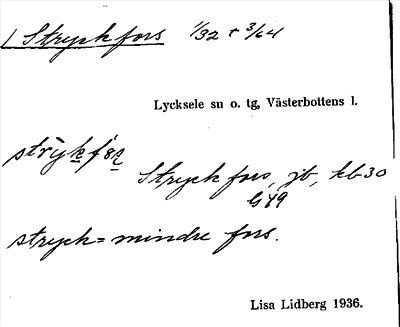 1 Stryckfors 1/32 + 3/64
Lycksele sn o. tg, Västerbottens l.
Stryckfors, jb, kb 30
G 49
stryck = mindre fors.
Lisa Lidberg 1936.